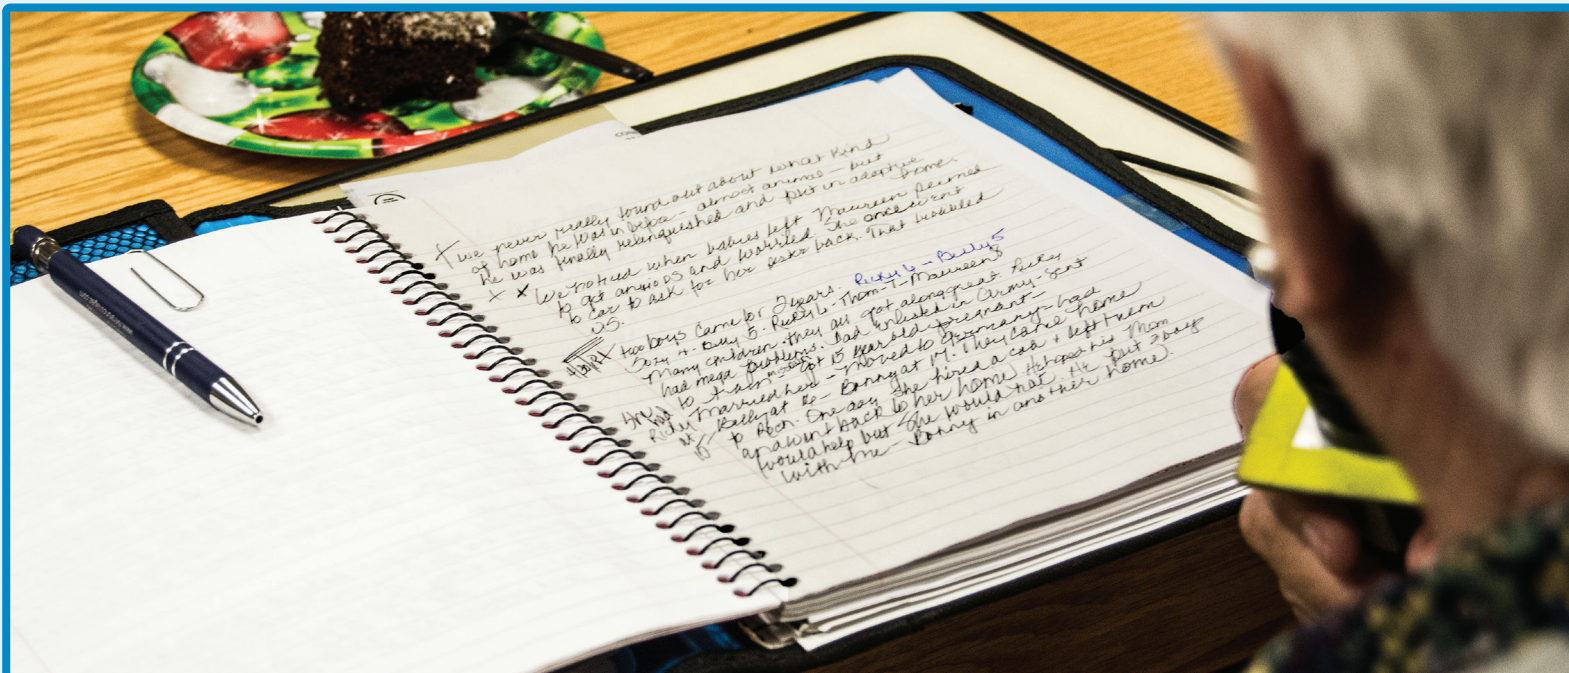 we never really found out about what kind
of home he was in before - almost animal - but
he was finally relinquished and put in adoptive
home.
We noticed when babies left Maureen seemed
to get anxious and worried. She once went
to car to ask for her sister back. That troubled
us.
Ricky 6 - Billy 5
two boys came for 2 years.
Suzy 4 - Billy 5 - Ricky 6 - Thom 7 - Maureen 8
Many children - they all got along great. Ricky
had mega problems. Dad enlisted in Army - sent
to train - got 15 year old pregnant -
married her - moved to Germany - had
Ricky at 15
Billy at 16 - Bonny at 17. They came home
to Roch. One day she hired a cab & left them
and went back to her home. He hoped his Mom
would help but she would not. He put 2 boys
with me - Bonny in another home.